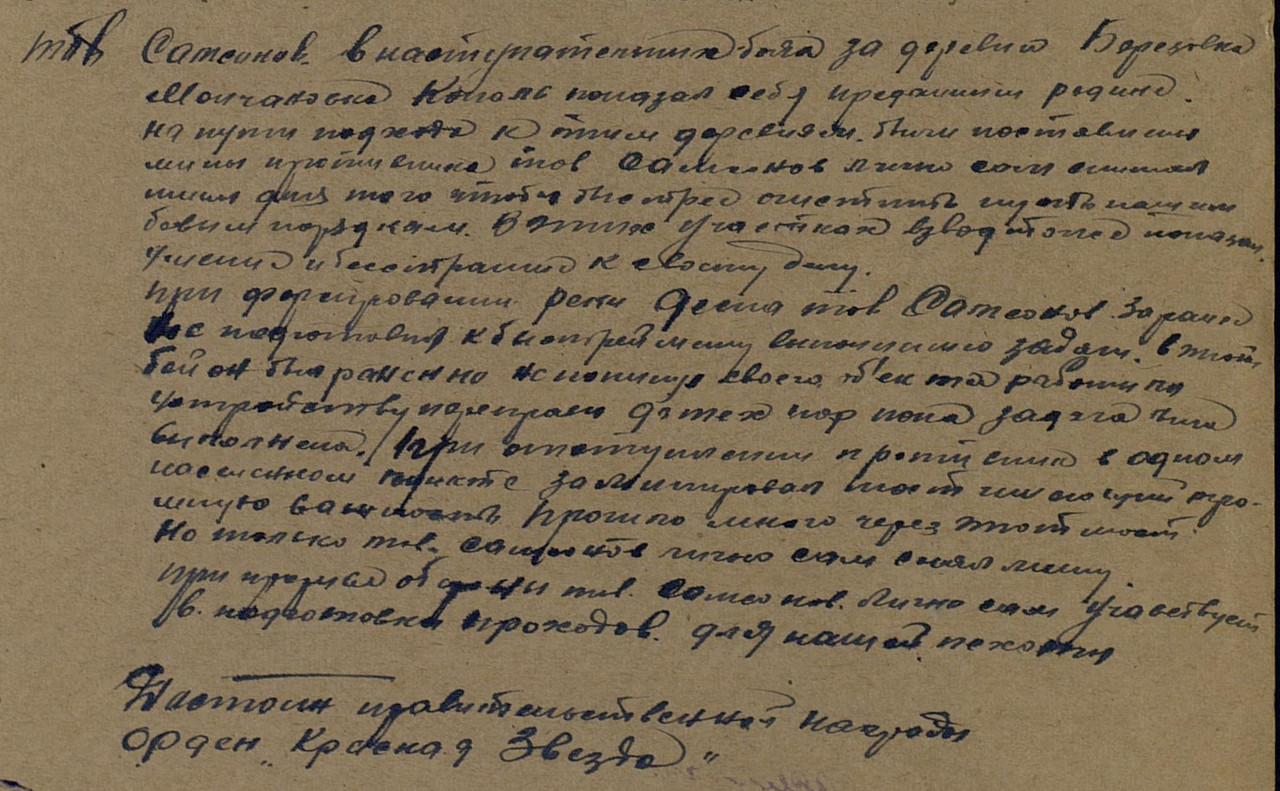 тов Самсонов. в наступательних боях за деревни Березовка
Молчановка Кополь показал себя преданным родине.
на пути подхода к этим деревням. были поставлены
мины противника тов Самсонов лично сам снимал
мины для того чтобы быстрее очистить путь нашим
боевым порядкам. В этих участках взвод тоже показал.
умение и бесстрашие к своему делу.
при форсировании реки Десна тов Самсонов. заранее
все подготовил к быстрейшему выполнению задачи. в этот
бой он был ранен но не покинул своего объекта работы по
устройству переправы до тех пор пока задача была
выполнена. При отступлении противник в одном
населенном пункте заминировал мост имеющий
важность прошло много через этот мост
Но только тов. Самсонов лично сам снял мину.
при прорыве обороны тов. Самсонов. Лично сам участвует
в. подготовки проходов. для нашей пехоты
Достоин правительственной награды
Орден „Красная Звезда"